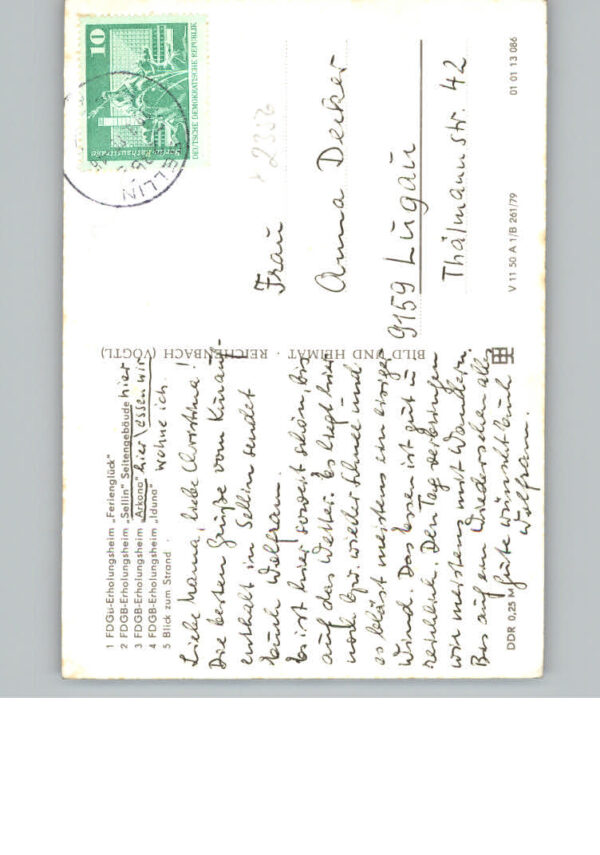 1 FDGB-Erholungsheim „Ferienglück"
2 FDGB-Erholungsheim „Sellin" Seitengebäude hier
3 FDGB-Erholungsheim „Arkona" hier essen wir
4 FDGB-Erholungsheim „Iduna" wohne ich.
5 Blick zum Strand
Liebe Mama, liebe Christina!
Die besten Grüße vom Kurauf-
enthalt in Sellin sendet
Euch Wolfram.
Es ist hier soweit schön, bis
auf das Wetter. Es liegt hier
noch bzw. wieder Schnee und
es bläst meistens ein eisiger
Wind. Das Essen ist gut u
reichlich. Den Tag verbringen
wir meistens mit Wandern.
Bis auf ein Wiedersehen alles
Gute wünscht Euch
Wolfram.
DDR 0,25 M
BILD UND HEIMAT · REICHENBACH (VOGTL)
10
DEUTSCHE DEMOKRATISCHE REPUBLIK
SELLIN
Frau
Anna Decker
9159 Lugau
Thälmannstr. 42
V 11 50 A 1/B 261/79
01 01 13 086